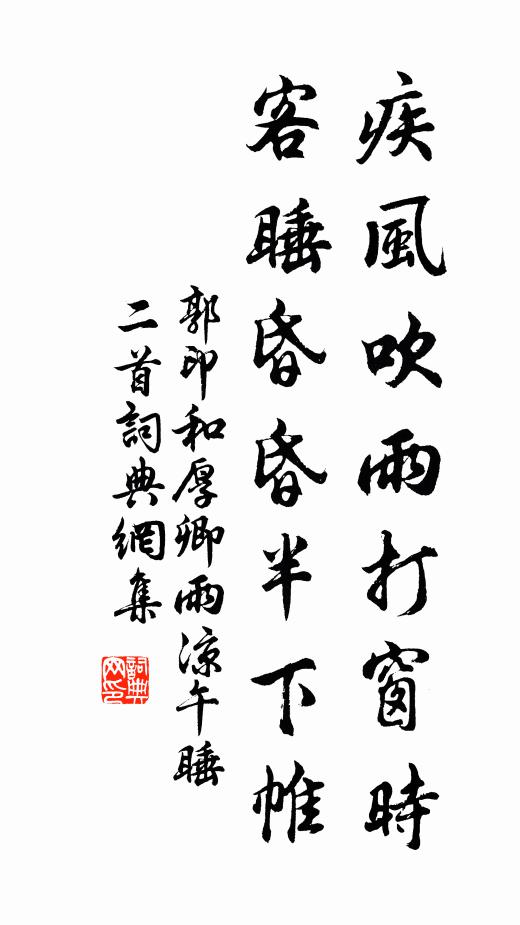 疾風吹雨打窗時
客睡昏昏半下帷
郭印和厚卿雨涼午睡
二首詞典網集
詞典网印